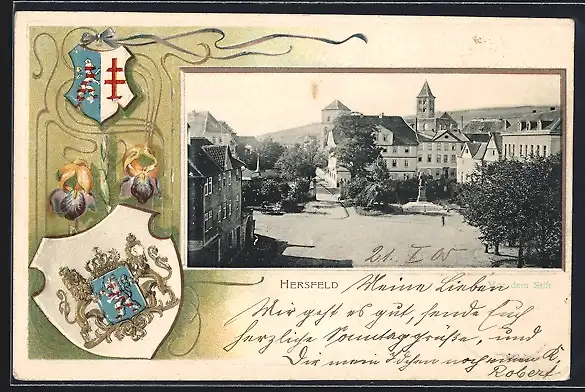 21. V 05
HERSFELD
dem Stift
Meine Lieben
Wir geht es gut, sende Euch
herzliche Sonntaggrüße, und
Dir mein noch einen K.
Robert